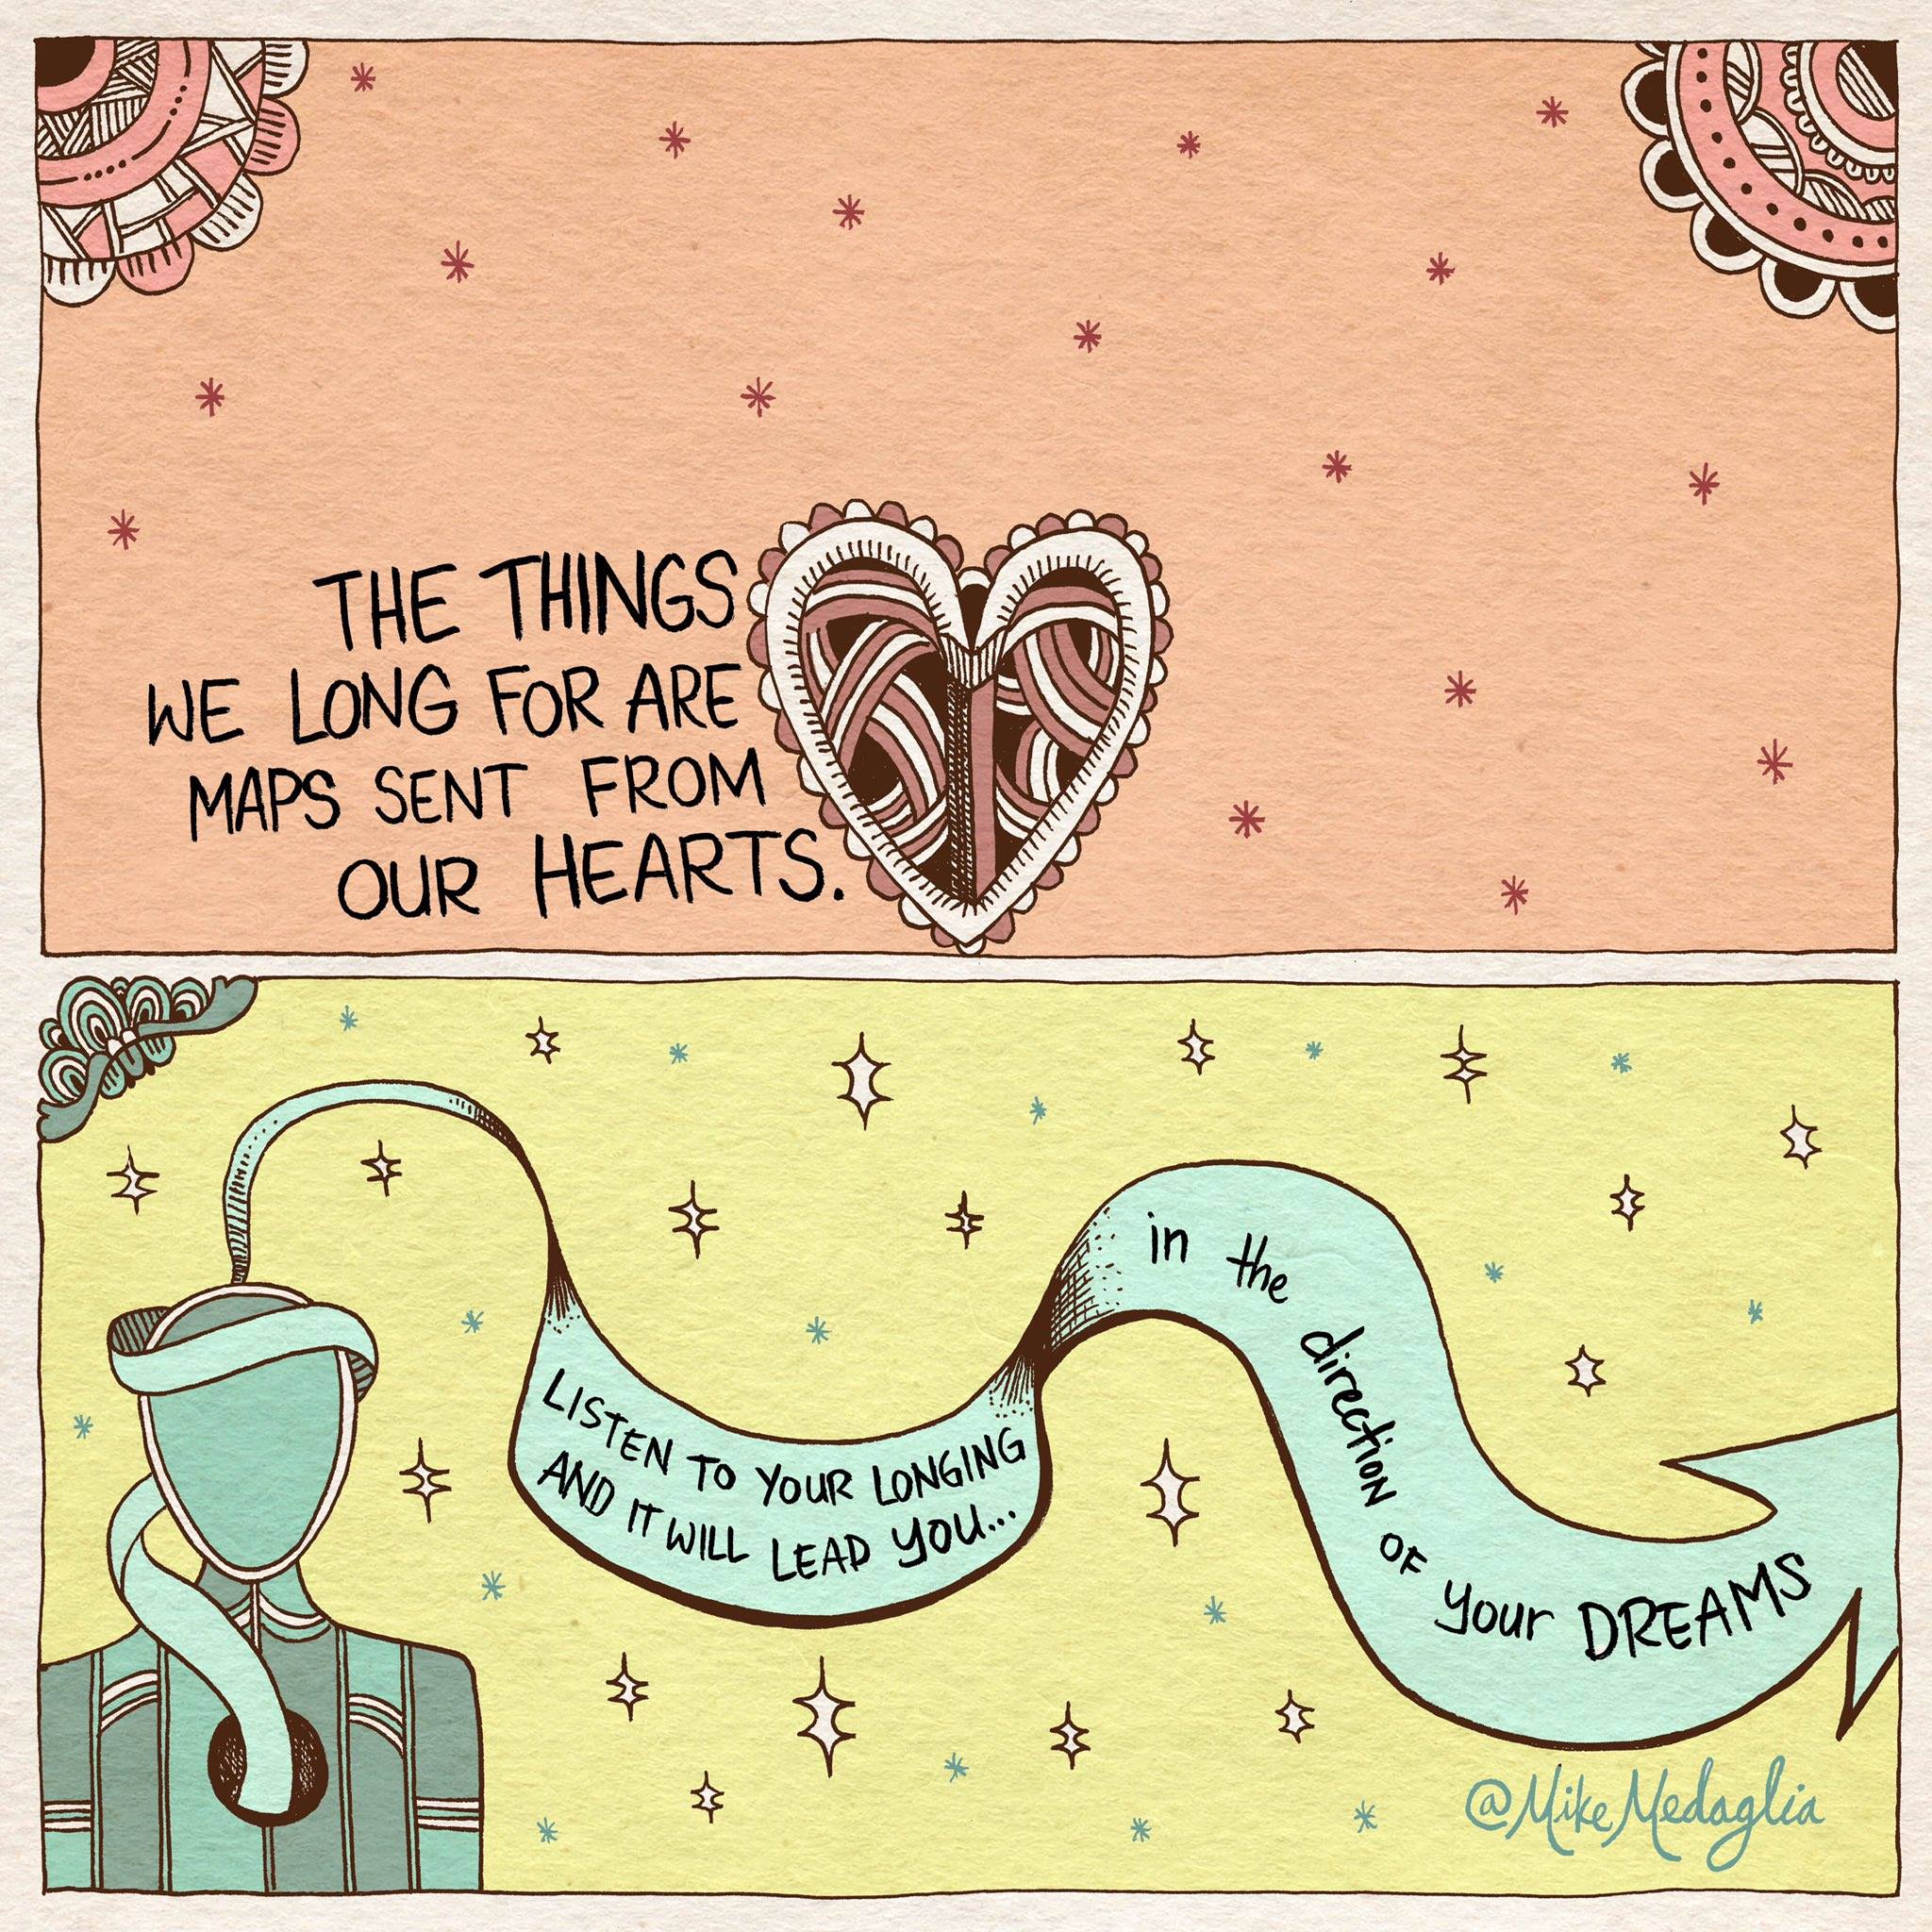 THE THINGS
WE LONG FOR ARE
MAPS SENT FROM
OUR HEARTS.
LISTEN TO YOUR LONGING
AND IT WILL LEAD YOU...
in the direction OF your DREAMS
@MikeMedaglia